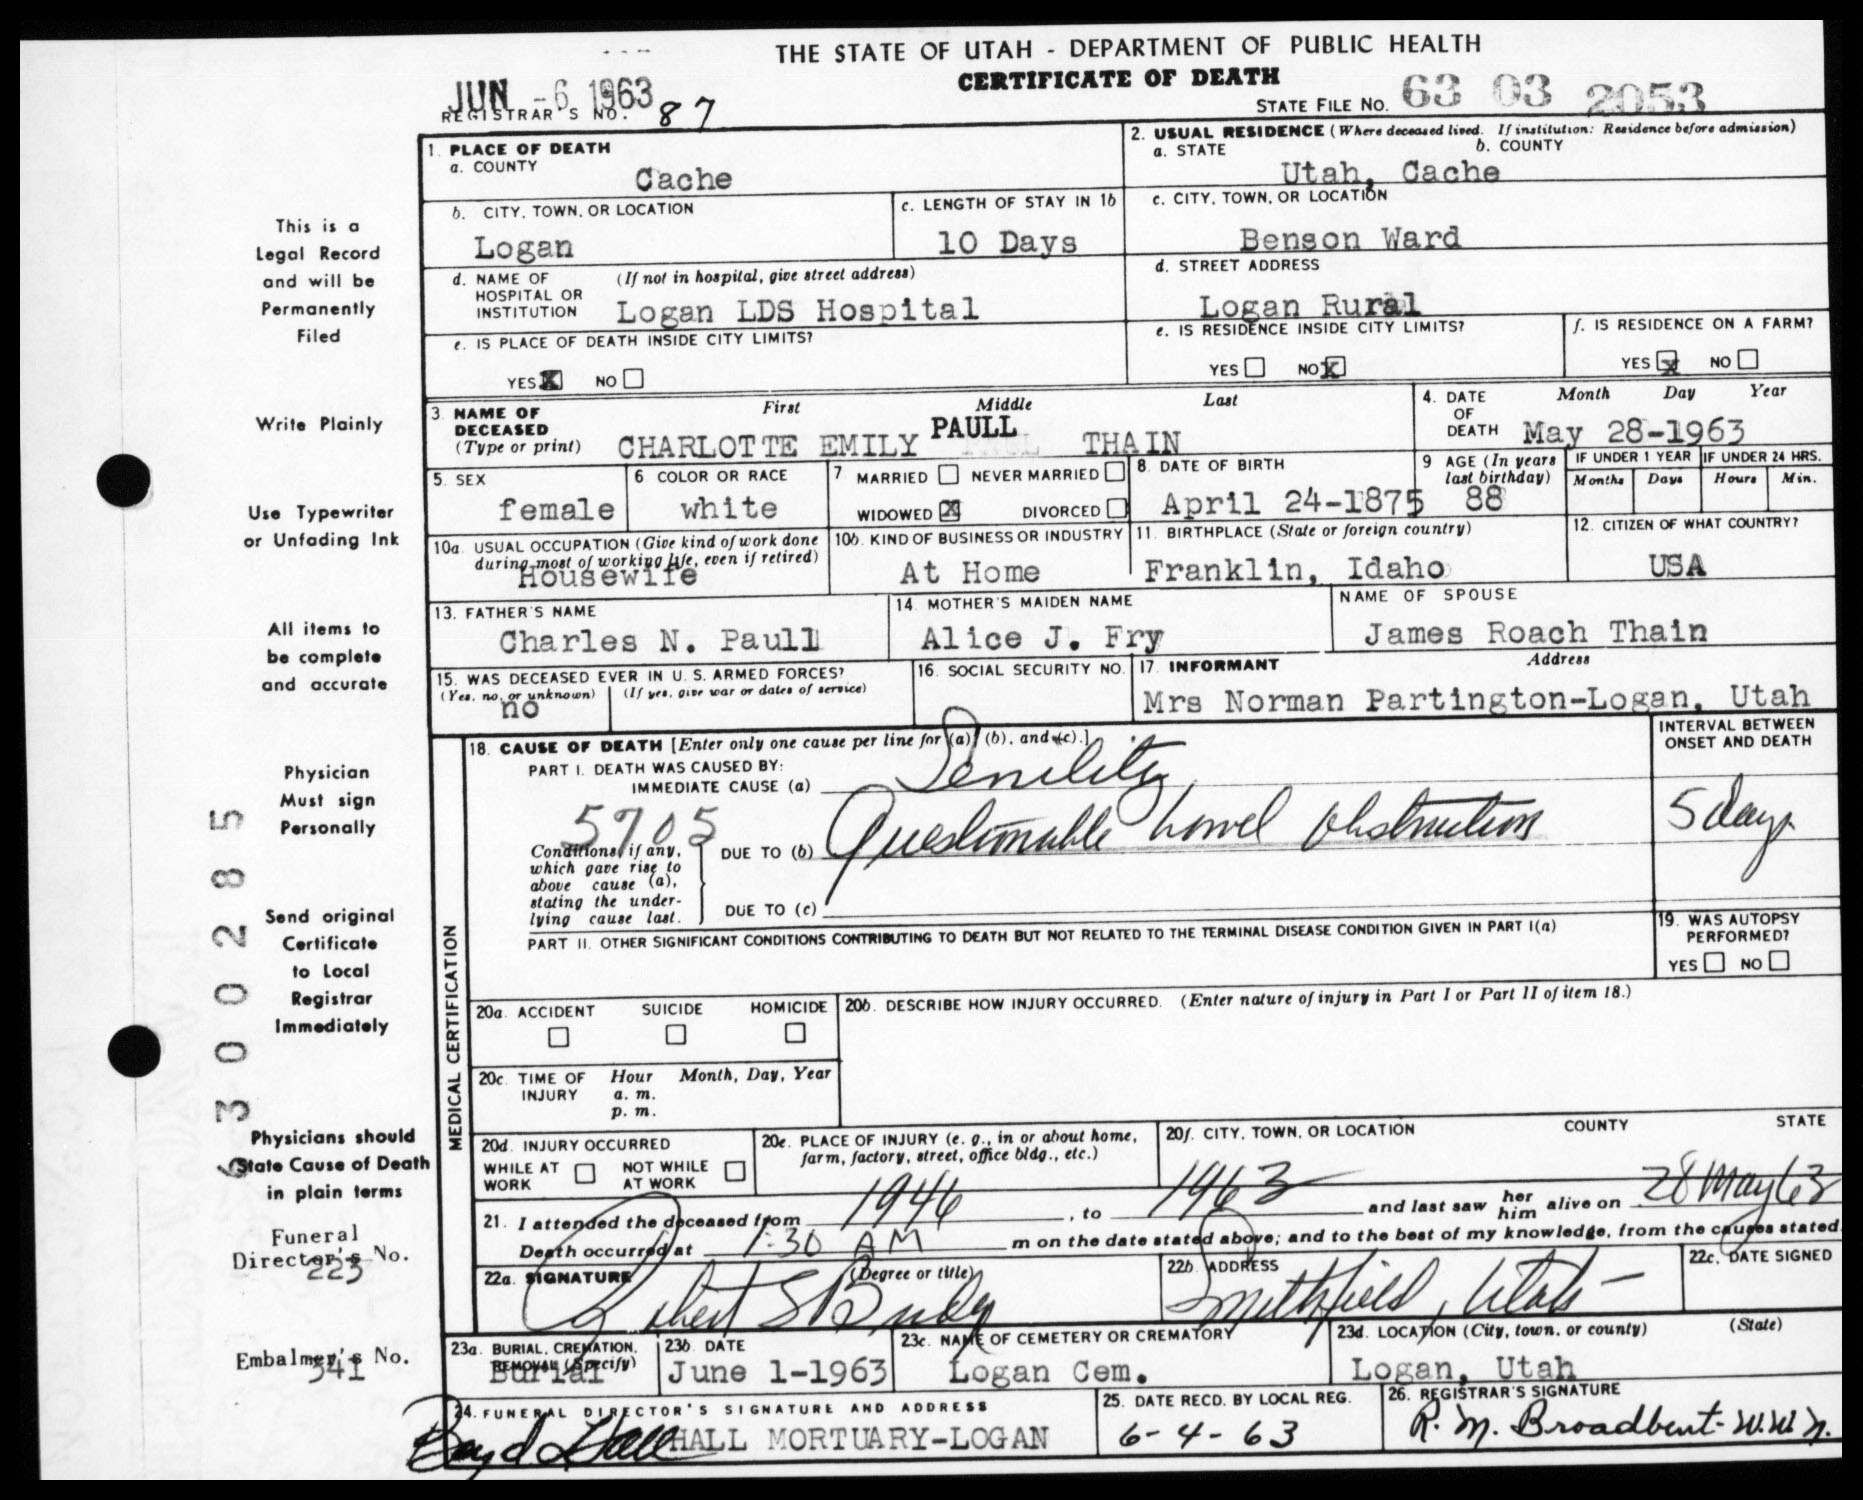 THE STATE OF UTAH - DEPARTMENT OF PUBLIC HEALTH
CERTIFICATE OF DEATH
JUN -6 1963
REGISTRAR'S NO. 87
STATE FILE NO. 63 03 2053
1. PLACE OF DEATH
a. COUNTY
Cache
2. USUAL RESIDENCE (Where deceased lived. If institution: Residence before admission)
a. STATE b. COUNTY
Utah, Cache
b. CITY, TOWN, OR LOCATION
Logan
c. LENGTH OF STAY IN 1b
10 Days
c. CITY, TOWN, OR LOCATION
Benson Ward
d. NAME OF HOSPITAL OR INSTITUTION (If not in hospital, give street address)
Logan LDS Hospital
d. STREET ADDRESS
Logan Rural
e. IS PLACE OF DEATH INSIDE CITY LIMITS?
YES X NO
e. IS RESIDENCE INSIDE CITY LIMITS?
YES NO X
f. IS RESIDENCE ON A FARM?
YES X NO
3. NAME OF DECEASED (Type or print)
First Middle Last
CHARLOTTE EMILY PAULL THAIN
4. DATE OF DEATH Month Day Year
May 28-1963
5. SEX
female
6 COLOR OR RACE
white
7 MARRIED NEVER MARRIED
WIDOWED X DIVORCED
8. DATE OF BIRTH
April 24-1875
9 AGE (In years last birthday)
88
IF UNDER 1 YEAR IF UNDER 24 HRS.
Months Days Hours Min.
10a. USUAL OCCUPATION (Give kind of work done during most of working life, even if retired)
Housewife
10b. KIND OF BUSINESS OR INDUSTRY
At Home
11. BIRTHPLACE (State or foreign country)
Franklin, Idaho
12. CITIZEN OF WHAT COUNTRY?
USA
13. FATHER'S NAME
Charles N. Paull
14. MOTHER'S MAIDEN NAME
Alice J. Fry
NAME OF SPOUSE
James Roach Thain
15. WAS DECEASED EVER IN U. S. ARMED FORCES?
(Yes, no, or unknown) (If yes, give war or dates of service)
no
16. SOCIAL SECURITY NO.
17. INFORMANT Address
Mrs Norman Partington-Logan, Utah
MEDICAL CERTIFICATION
18. CAUSE OF DEATH [Enter only one cause per line for (a), (b), and (c).]
INTERVAL BETWEEN ONSET AND DEATH
PART I. DEATH WAS CAUSED BY:
IMMEDIATE CAUSE (a) Senility
5705
Conditions, if any, which gave rise to above cause (a), stating the underlying cause last.
DUE TO (b) Questionable bowel obstruction
5 days
DUE TO (c)
PART II. OTHER SIGNIFICANT CONDITIONS CONTRIBUTING TO DEATH BUT NOT RELATED TO THE TERMINAL DISEASE CONDITION GIVEN IN PART I(a)
19. WAS AUTOPSY PERFORMED?
YES NO
20a. ACCIDENT SUICIDE HOMICIDE
20b. DESCRIBE HOW INJURY OCCURRED. (Enter nature of injury in Part I or Part II of item 18.)
20c. TIME OF INJURY Hour Month, Day, Year
a. m.
p. m.
20d. INJURY OCCURRED
WHILE AT WORK NOT WHILE AT WORK
20e. PLACE OF INJURY (e. g., in or about home, farm, factory, street, office bldg., etc.)
20f. CITY, TOWN, OR LOCATION COUNTY STATE
21. I attended the deceased from 1946, to 1963 and last saw her him alive on 28 May 63
Death occurred at 1:30 AM m on the date stated above; and to the best of my knowledge, from the causes stated.
22a. SIGNATURE (Degree or title)
Robert S Budge
22b. ADDRESS
Smithfield, Utah
22c. DATE SIGNED
23a. BURIAL, CREMATION, REMOVAL (Specify)
Burial
23b. DATE
June 1-1963
23c. NAME OF CEMETERY OR CREMATORY
Logan Cem.
23d. LOCATION (City, town, or county) (State)
Logan, Utah
24. FUNERAL DIRECTOR'S SIGNATURE AND ADDRESS
Boyd Hall HALL MORTUARY-LOGAN
25. DATE RECD. BY LOCAL REG.
6-4-63
26. REGISTRAR'S SIGNATURE
R. M. Broadbent-W.W.N.
This is a
Legal Record
and will be
Permanently
Filed
Write Plainly
Use Typewriter
or Unfading Ink
All items to
be complete
and accurate
Physician
Must sign
Personally
Send original
Certificate
to Local
Registrar
Immediately
Physicians should
State Cause of Death
in plain terms
Funeral
Director's No.
223
Embalmer's No.
341
6300285